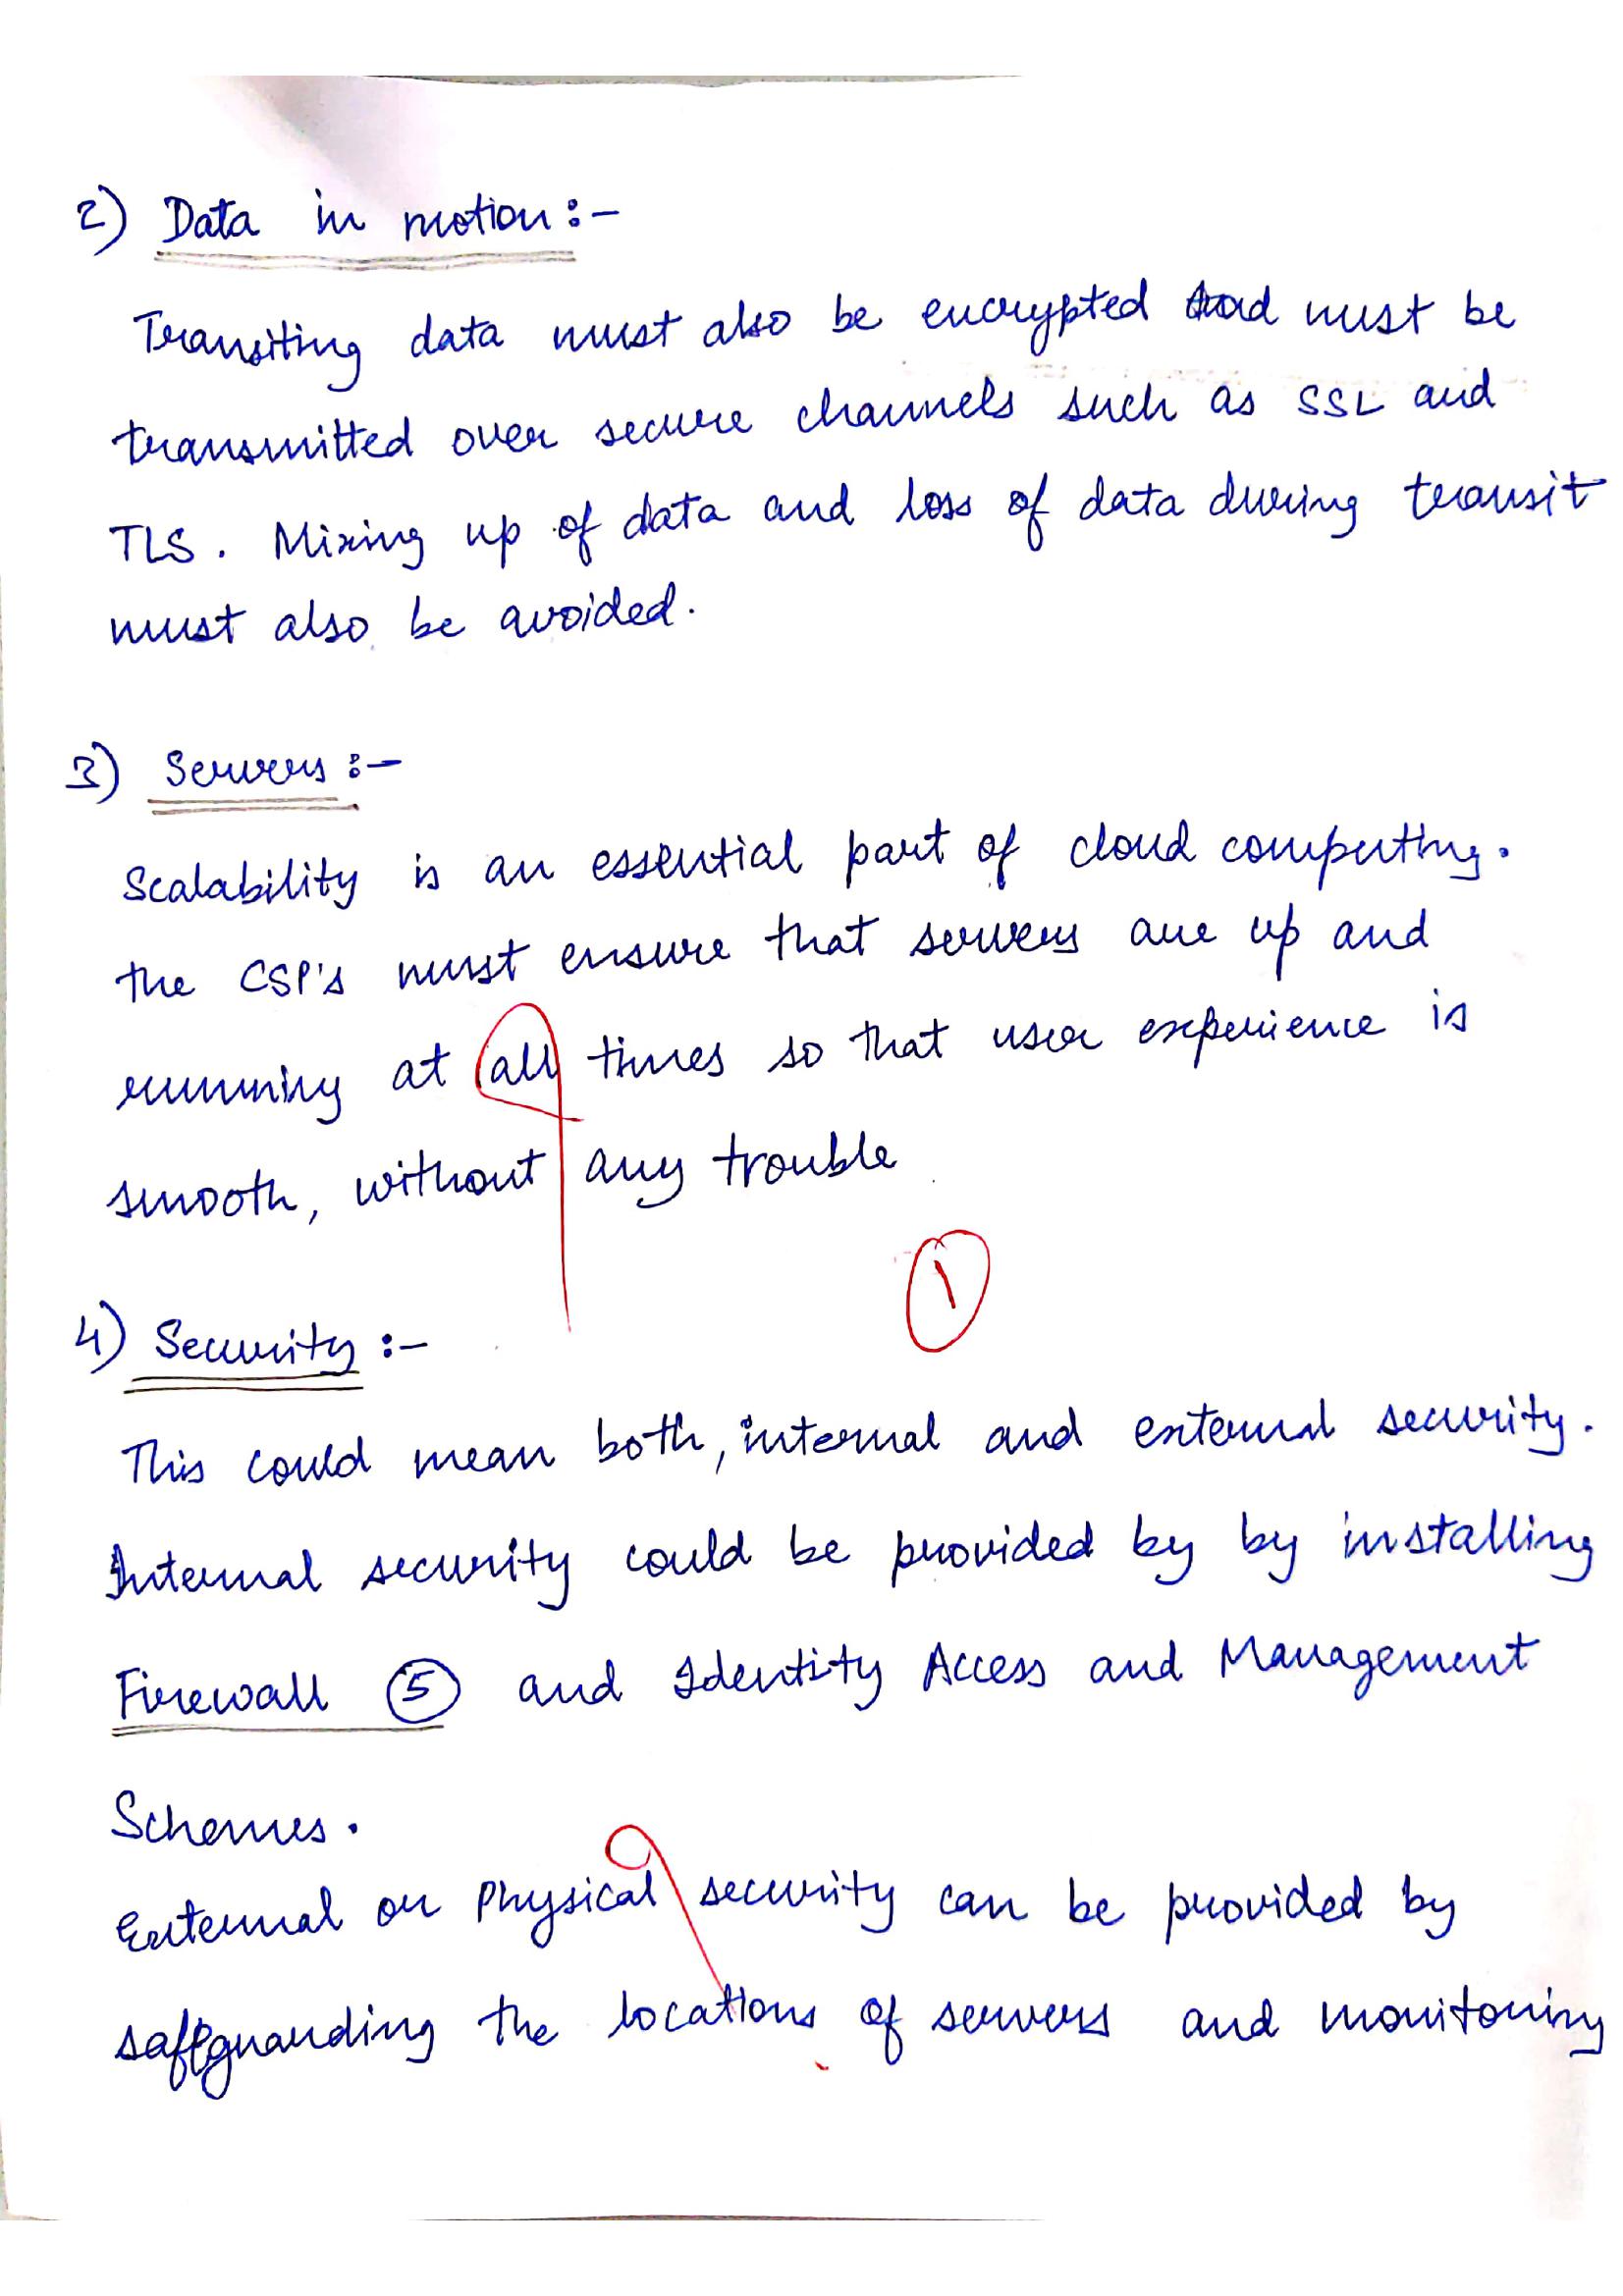 2) Data in motion :-
Transiting data must also be encrypted and must be
transmitted over secure channels such as SSL and
TLS. Mixing up of data and loss of data during transit
must also be avoided.
3) Servers :-
Scalability is an essential part of cloud computing.
the CSP's must ensure that servers are up and
running at all times so that user experience is
smooth, without any trouble
1
4) Security :-
This could mean both, internal and external security.
Internal security could be provided by by installing
Firewall 5 and Identity Access and Management
Schemes.
External or Physical security can be provided by
safeguarding the locations of servers and monitoring